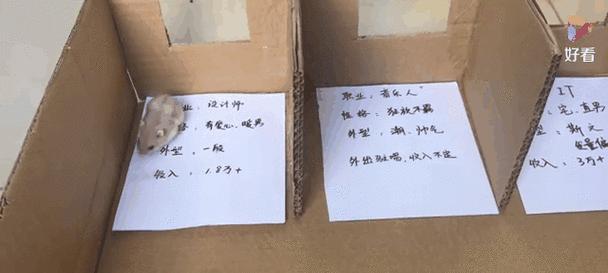 好看
业：设计师
格：有爱心、暖男
外型：一般
收入：1.8万+
职业：音乐人
性格：狂放不羁
外型：潮、帅气
外出驻唱，收入不定
IT
：宅、直男
型：斯文
收入：3万+